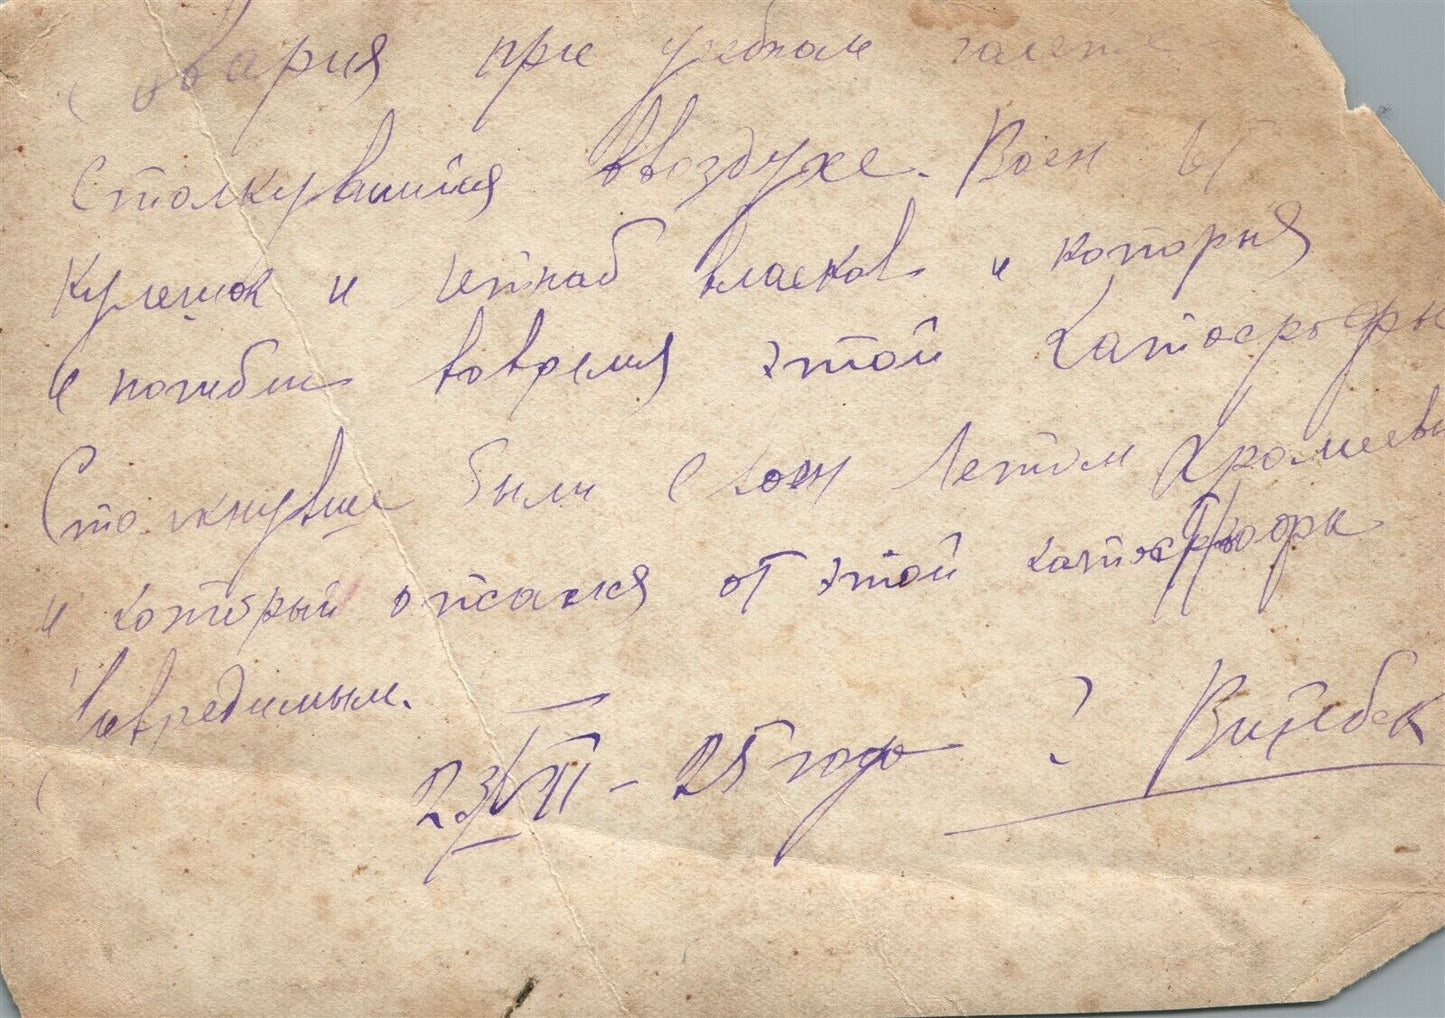 Авария при учебном полете
Столкувшийся ввоздухе. Воен
Кулешок и летнаб Власков и которыя
и погибли вовремя этой катосрофы
Столкнувше были с воен летом Хромеевы
и который остался от этой катосрофы
невредимым.
23/VII – 25 года Витебск